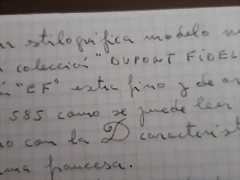 estilográfica modelo
colección "DUPONT FIDEL
"EF" extra fino y de
585 como se puede leer
con la D caracterist
francesa.